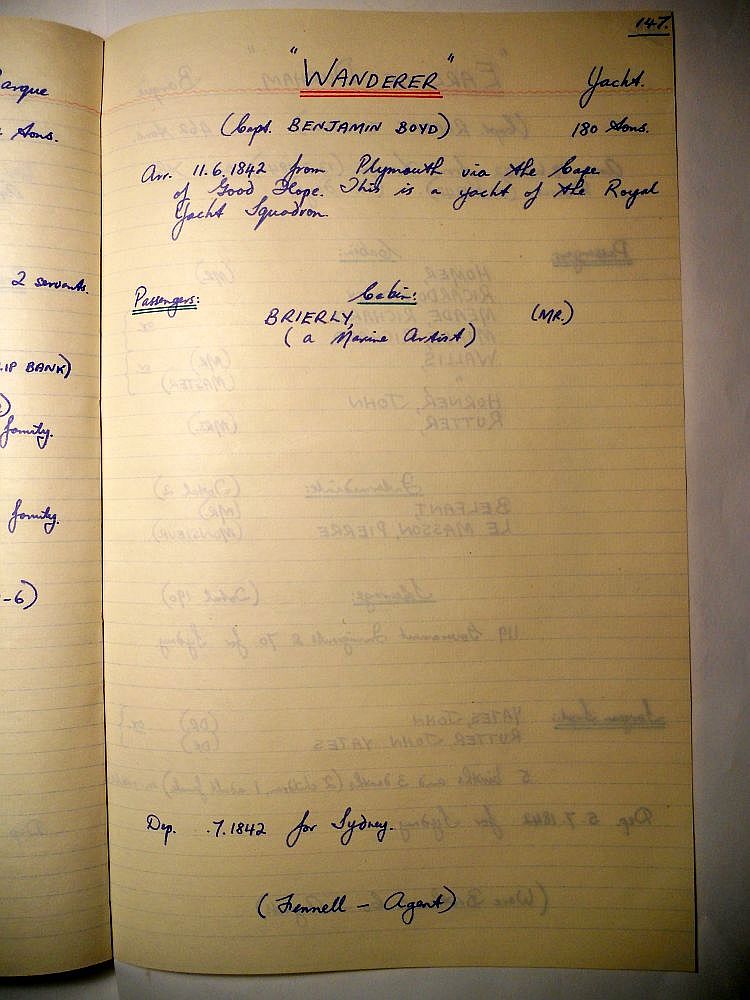 arque
tons.
2 servants.
LIP BANK)
family.
family.
-6)
147.
"WANDERER" Yacht.
(Capt. BENJAMIN BOYD) 180 tons.
Arr. 11.6.1842 from Plymouth via the Cape
of Good Hope. This is a yacht of the Royal
Yacht Squadron.
Passengers: Cabin:
BRIERLY, (MR.)
(a Marine Artist)
Dep. .7.1842 for Sydney.
(Fennell - Agent)